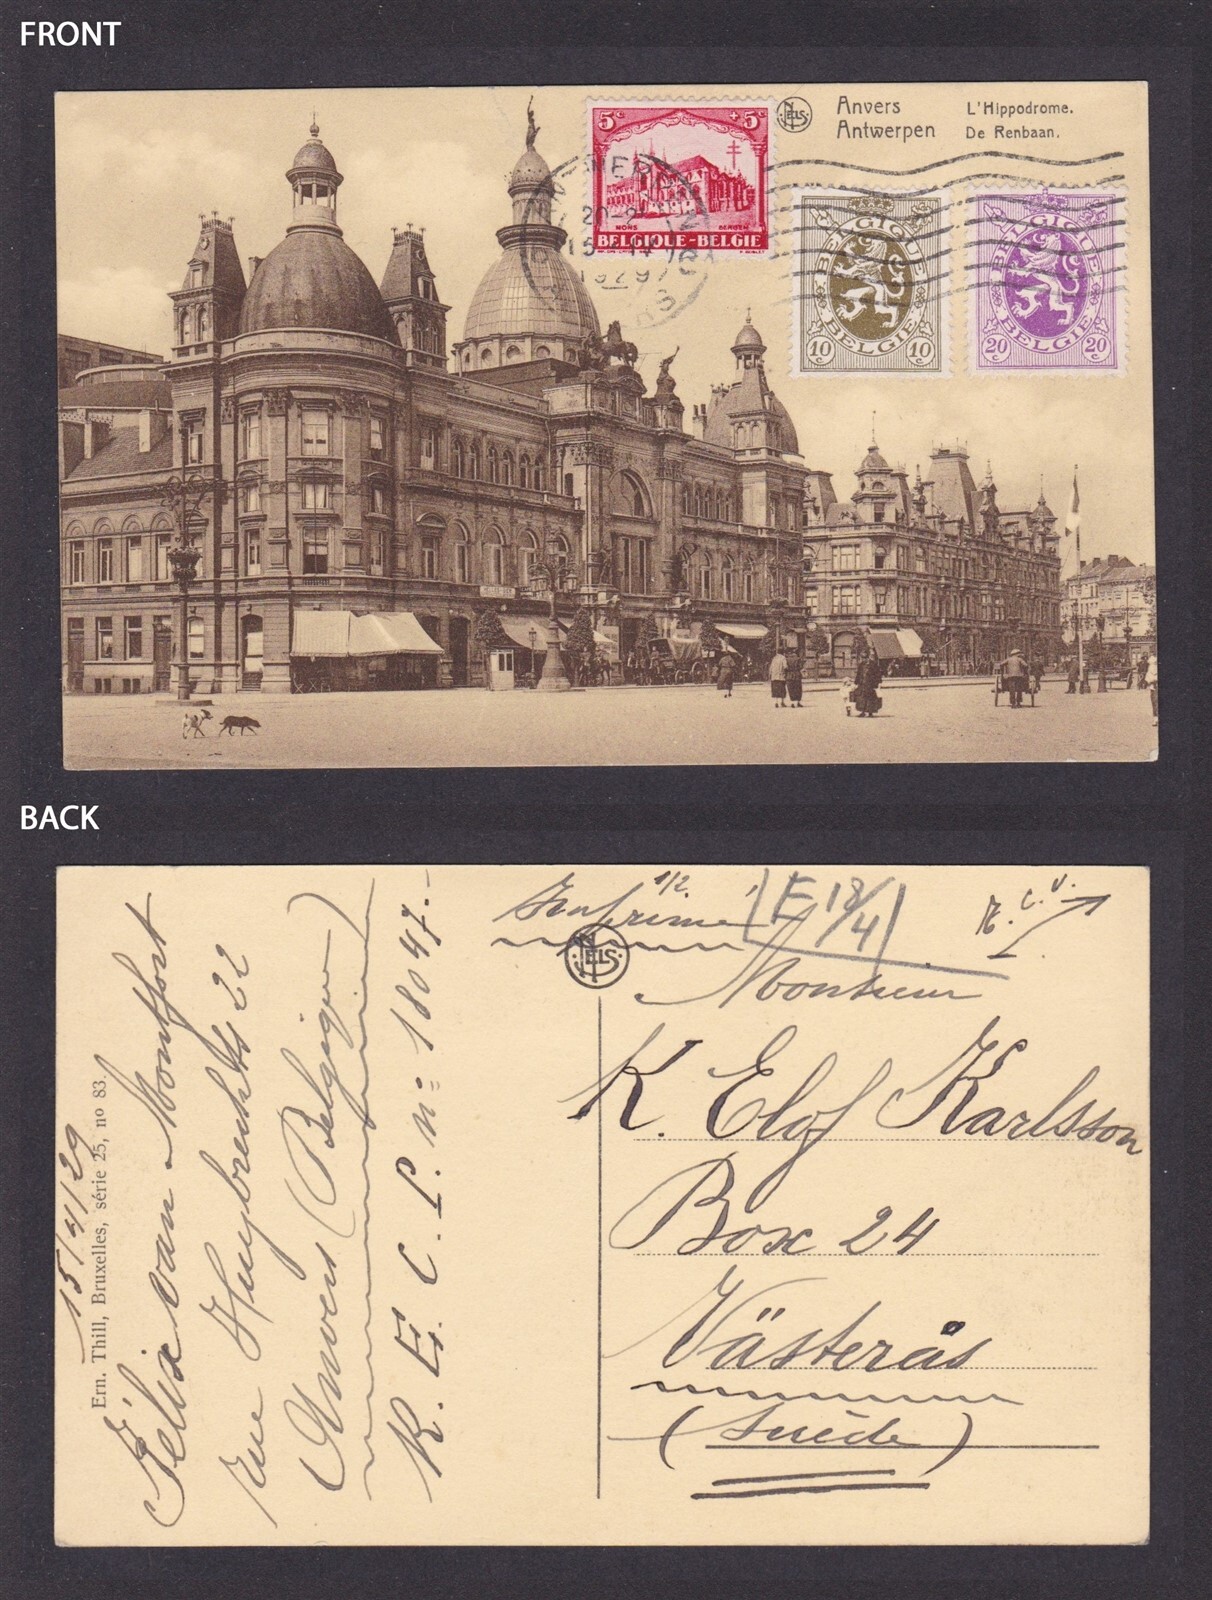 FRONT
NELS
Anvers
Antwerpen
L'Hippodrome.
De Renbaan.
5c +5c
MONS BERGEN
BELGIQUE-BELGIË
BELGIQUE
BELGIE
10c 10c
BELGIQUE
BELGIE
20c 20c
ANTWERPEN
15
1929
ANVERS
BACK
15/4/29
Ern. Thill, Bruxelles, série 25, no 83.
Félia van Montfort
rue Huybrechts 22
Anvers (Belgique)
K. E. C. P. n° 18047.-
Imprimé
1/2.
E 18/4
t. c. v.
NELS
Monsieur
K. Elof Karlsson
Box 24
Västerås
(Suède)